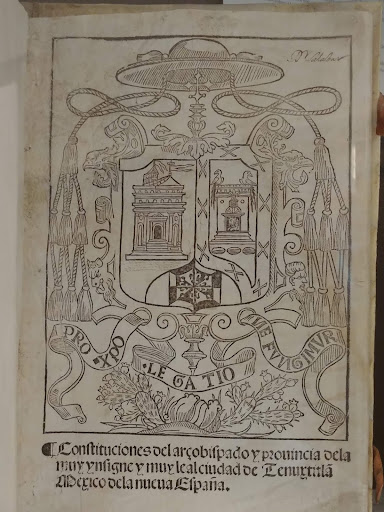 PRO XPO
LEGATIO
NE FVNGIMVR
¶Constituciones del arçobispado y prouincia dela
muy ynsigne y muy leal ciudad de Tenuxtitlã
Mexico dela nueua España.